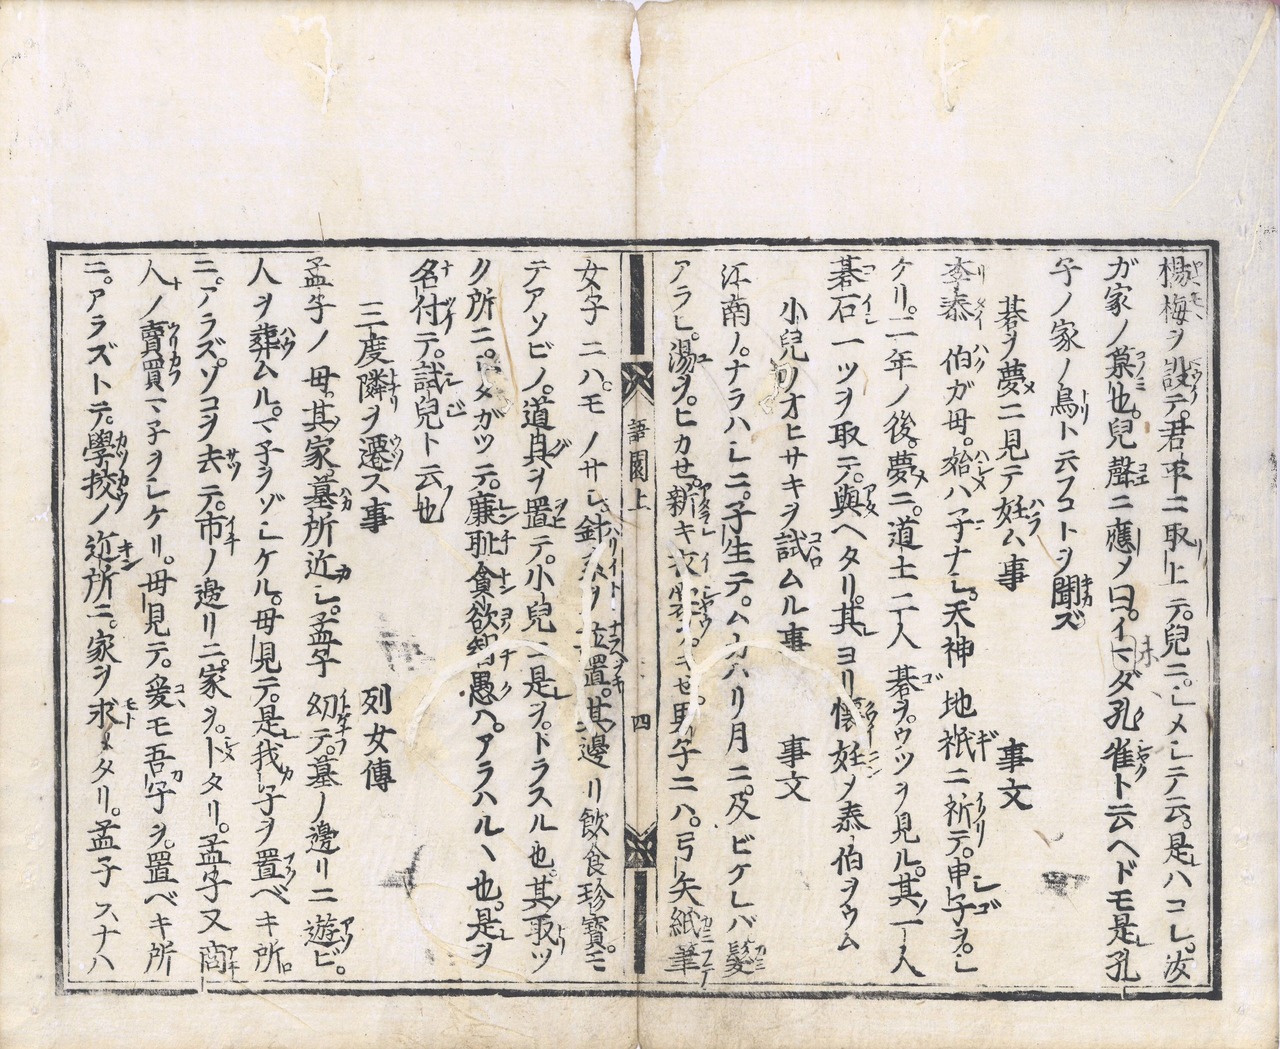 楊梅ヲ設テ。君平ニ取上テ。兒ニ。シメシテ云。是ハコレ。汝
ガ家ノ菓也。兒聲ニ應メ曰。イマダ孔雀ト云ヘドモ是孔
子ノ家ノ鳥ト云フコトヲ聞ズ
碁ヲ夢ニ見テ妊ム事 事文
李泰伯ガ母。始ハ子ナシ。天神地祇ニ祈テ。申子ヲ。シ
ケリ。二年ノ後。夢ニ。道士二人碁ヲ。ウツヲ見ル。其一人
碁石一ツヲ取テ。與ヘタリ。其ヨリ懐妊メ泰伯ヲウム
小兒ノオヒサキヲ試ムル事 事文
江南ノ。ナラハシニ。子生テ。ムカハリ月ニ。及ビケレバ髮
アラヒ。湯ヲ。ヒカセ。新キ衣裳ヲ。キセ。男子ニハ。弓矢紙筆
語園上 四
女子ニハ。モノサシ針糸ヲ並置。其邊リ飲食珍寶。モ
テアソビノ。道具ヲ置テ。小兒ニ是ヲ。トラスル也。其取ツ
ク所ニ。シタガツテ。廉耻貪欲智愚ヘ。アラハルヽ也。是ヲ
名付テ。試兒ト云也
三度隣ヲ遷ス事 列女傳
孟子ノ母。其家。墓所近シ。孟子幼テ。墓ノ邊リニ遊ビ。
人ヲ葬ムル。マ子ヲゾシケル。母見テ。是我子ヲ置ベキ所
ニ。アラズ。ソコヲ去テ。市ノ邊リニ。家ヲ。トタリ。孟子又商
人ノ賣買マ子ヲシケリ。母見テ。爰モ吾子ヲ。置ベキ所
ニ。アラズトテ。學挍ノ近所ニ。家ヲ求メタリ。孟子スナハ